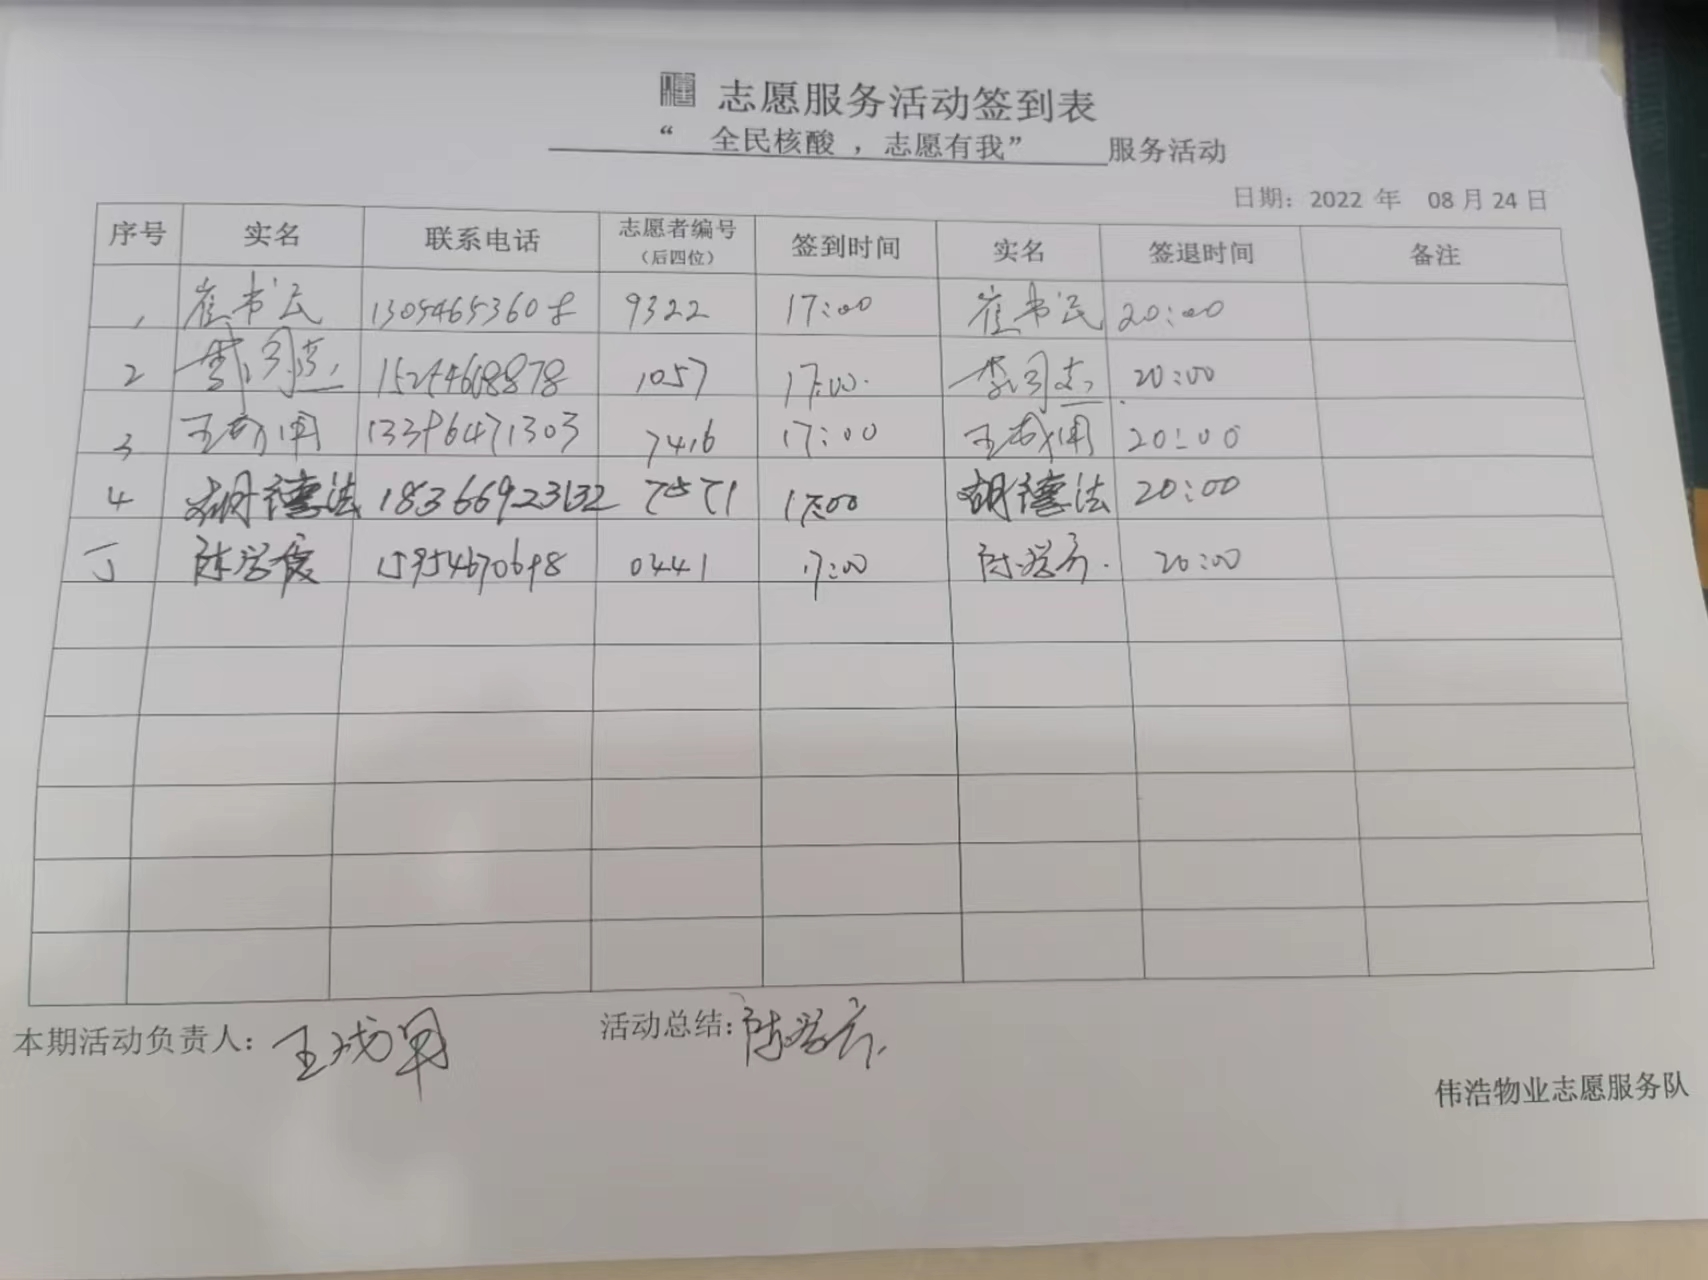 志愿服务活动签到表
“ 全民核酸 ，志愿有我” 服务活动
日期：2022 年 08月24日
序号 实名 联系电话 志愿者编号（后四位） 签到时间 实名 签退时间 备注
1 崔书民 9322 17:00 崔书民 20:00
2 15254668878 1057 17:00 20:00
3 13396471303 7416 17:00 20:00
4 胡德法 18366923132 17:00 胡德法 20:00
5 15954670698 0441 17:00 20:00
本期活动负责人： 活动总结：
伟浩物业志愿服务队